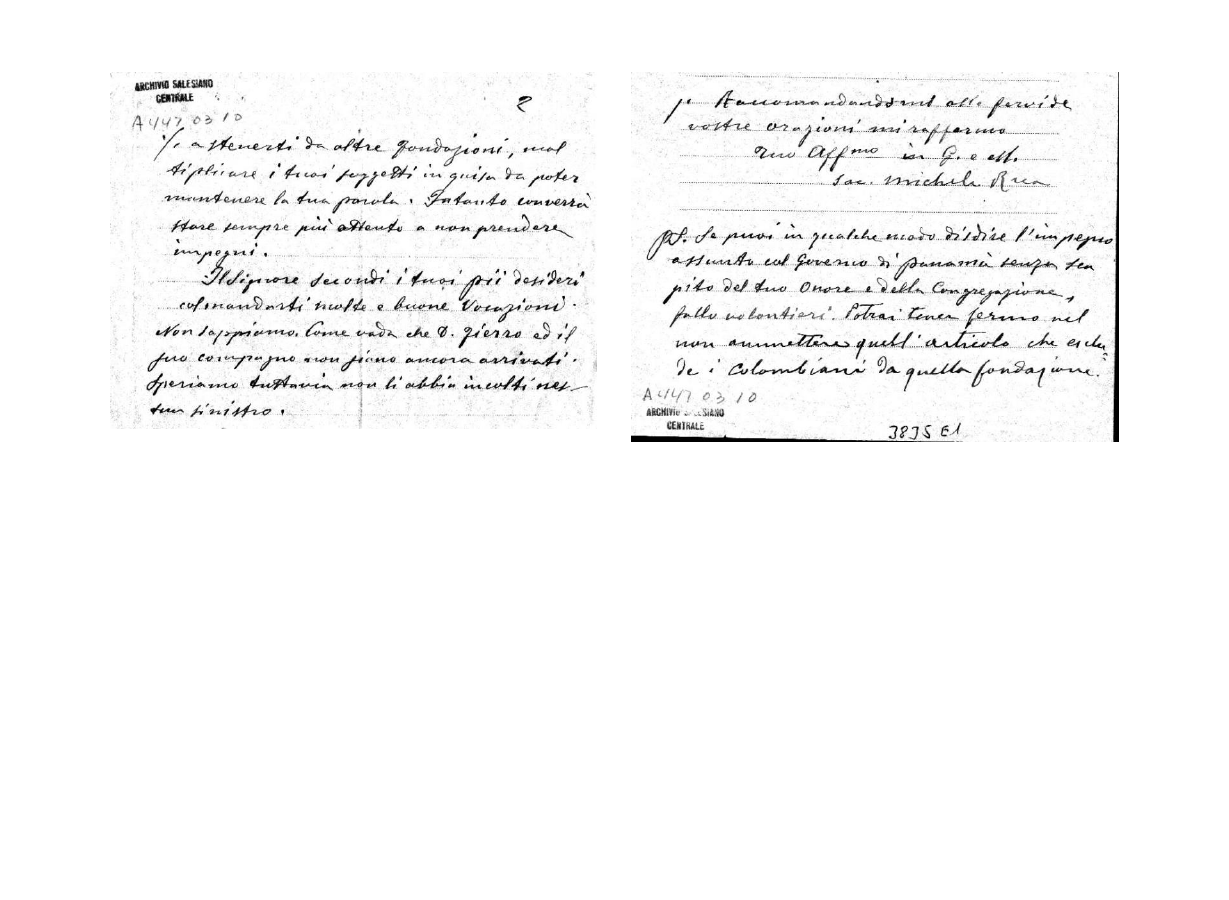 ARCHIVIO SALESIANO
CENTRALE
2
A 447 03 10
./. astenerti da altre fondazioni, mol
tiplicare i tuoi soggetti in guisa da poter
mantenere la tua parola. Intanto converrà
stare sempre più attento a non prendere
impegni.
Il Signore secondi i tuoi pii desideri
col mandarti molte e buone Vocazioni.
Non sappiamo. Come vada che D. Zierro ed il
suo compagno non siano ancora arrivati.
Speriamo tuttavia non li abbia incolti nes-
sun sinistro.
Raccomandandomi alle fervide
vostre orazioni mi raffermo
Tuo Aff.mo in G. e M.
Sac. Michele Rua
PS. Se puoi in qualche modo disdire l'impegno
assunto col Governo di Panamà senza sca
pito del tuo Onore e della Congregazione,
fallo volontieri. Potrai tener fermo nel
non ammettere quell'articolo che esclu
de i Colombiani da quella fondazione.
A 447 03 10
ARCHIVIO SALESIANO
CENTRALE
3835 E1